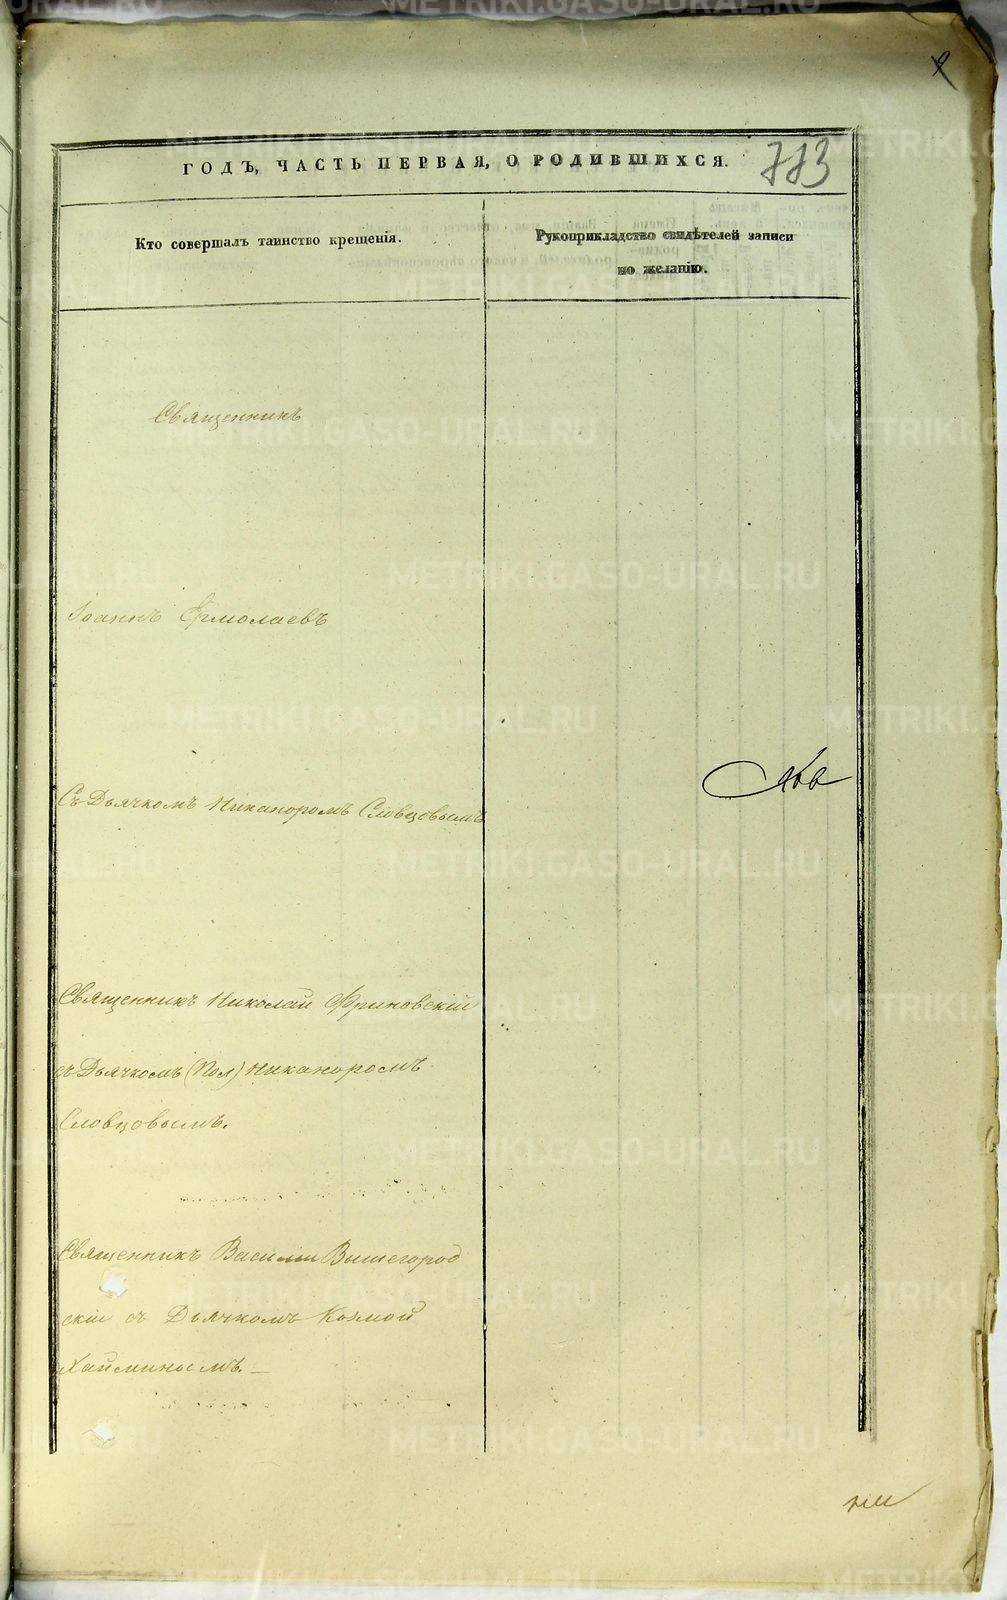 773
ГОДЪ, ЧАСТЬ ПЕРВАЯ, О РОДИВШИХСЯ.
Кто совершалъ таинство крещенія.
Рукоприкладство свидѣтелей записи
по желанію.
Священникъ
Іоаннъ Ермолаевъ
Съ Дьячкомъ Никаноромъ Словцовымъ
Священникъ Николай Фриновскій
съ Дьячкомъ (Пол) Никаноромъ
Словцовымъ.
Священникъ Василій Вышегород
скій съ Дьячкомъ Козмой
Хайминымъ. —
METRIKI.GASO-URAL.RU